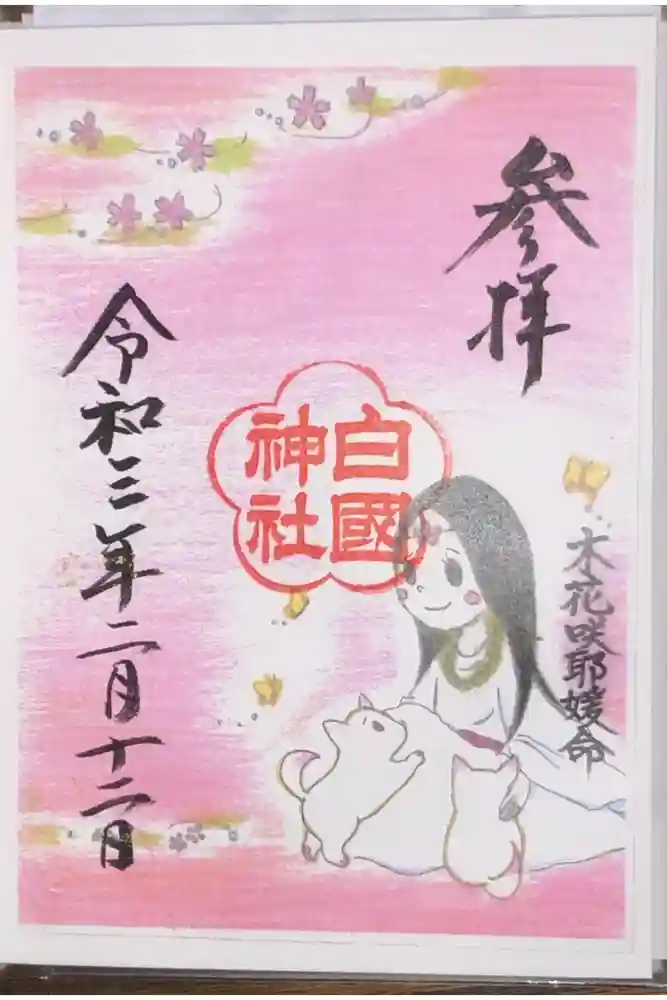 参拝
木花咲耶媛命
白國
神社
令和三年二月十二日